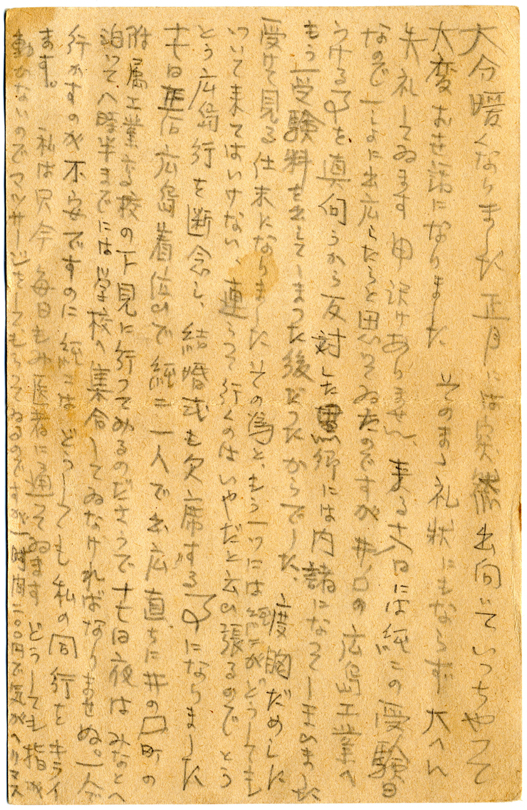 大分暖くなりました 正月には突然出向いていっちやつて
大変お世話になりました そのまゝ礼状にもならず 大へん
失礼してゐます 申訳けありません 来る 日には紘この受験日
なので一しょに出広したらと思つてゐたのですが 井ノ口の広島工業へ
うける事を真向うから反対した 郷には内諸になつてしまゐました
もう受験料を出してしまつた後だつたからでした 度胸だめしに
受けて見る仕末になりました その為と、もう一つには がどうしても
ついて来てはいけない、連らつて行くのはいやだと云ひ張るのでとう
とう広島行を断念し、結婚式も欠席する事になりました
十七日 后広島着位ひで紘二一人で出広直ちに井の口町の
附属工業高校の下見に行つてみるのださうで 十七日夜はみなとへ
泊いて八時半までには学校へ集合してゐなければなりませぬ。一人で
行かすのが不安ですのに紘二はどうしても私の同行をキライ
ます。 私は只今毎日もみ医者に通つてゐます どうしても指が
動かないのでマッサージをしてもらつてゐるのですが一時間二〇〇円で気がヘリマス